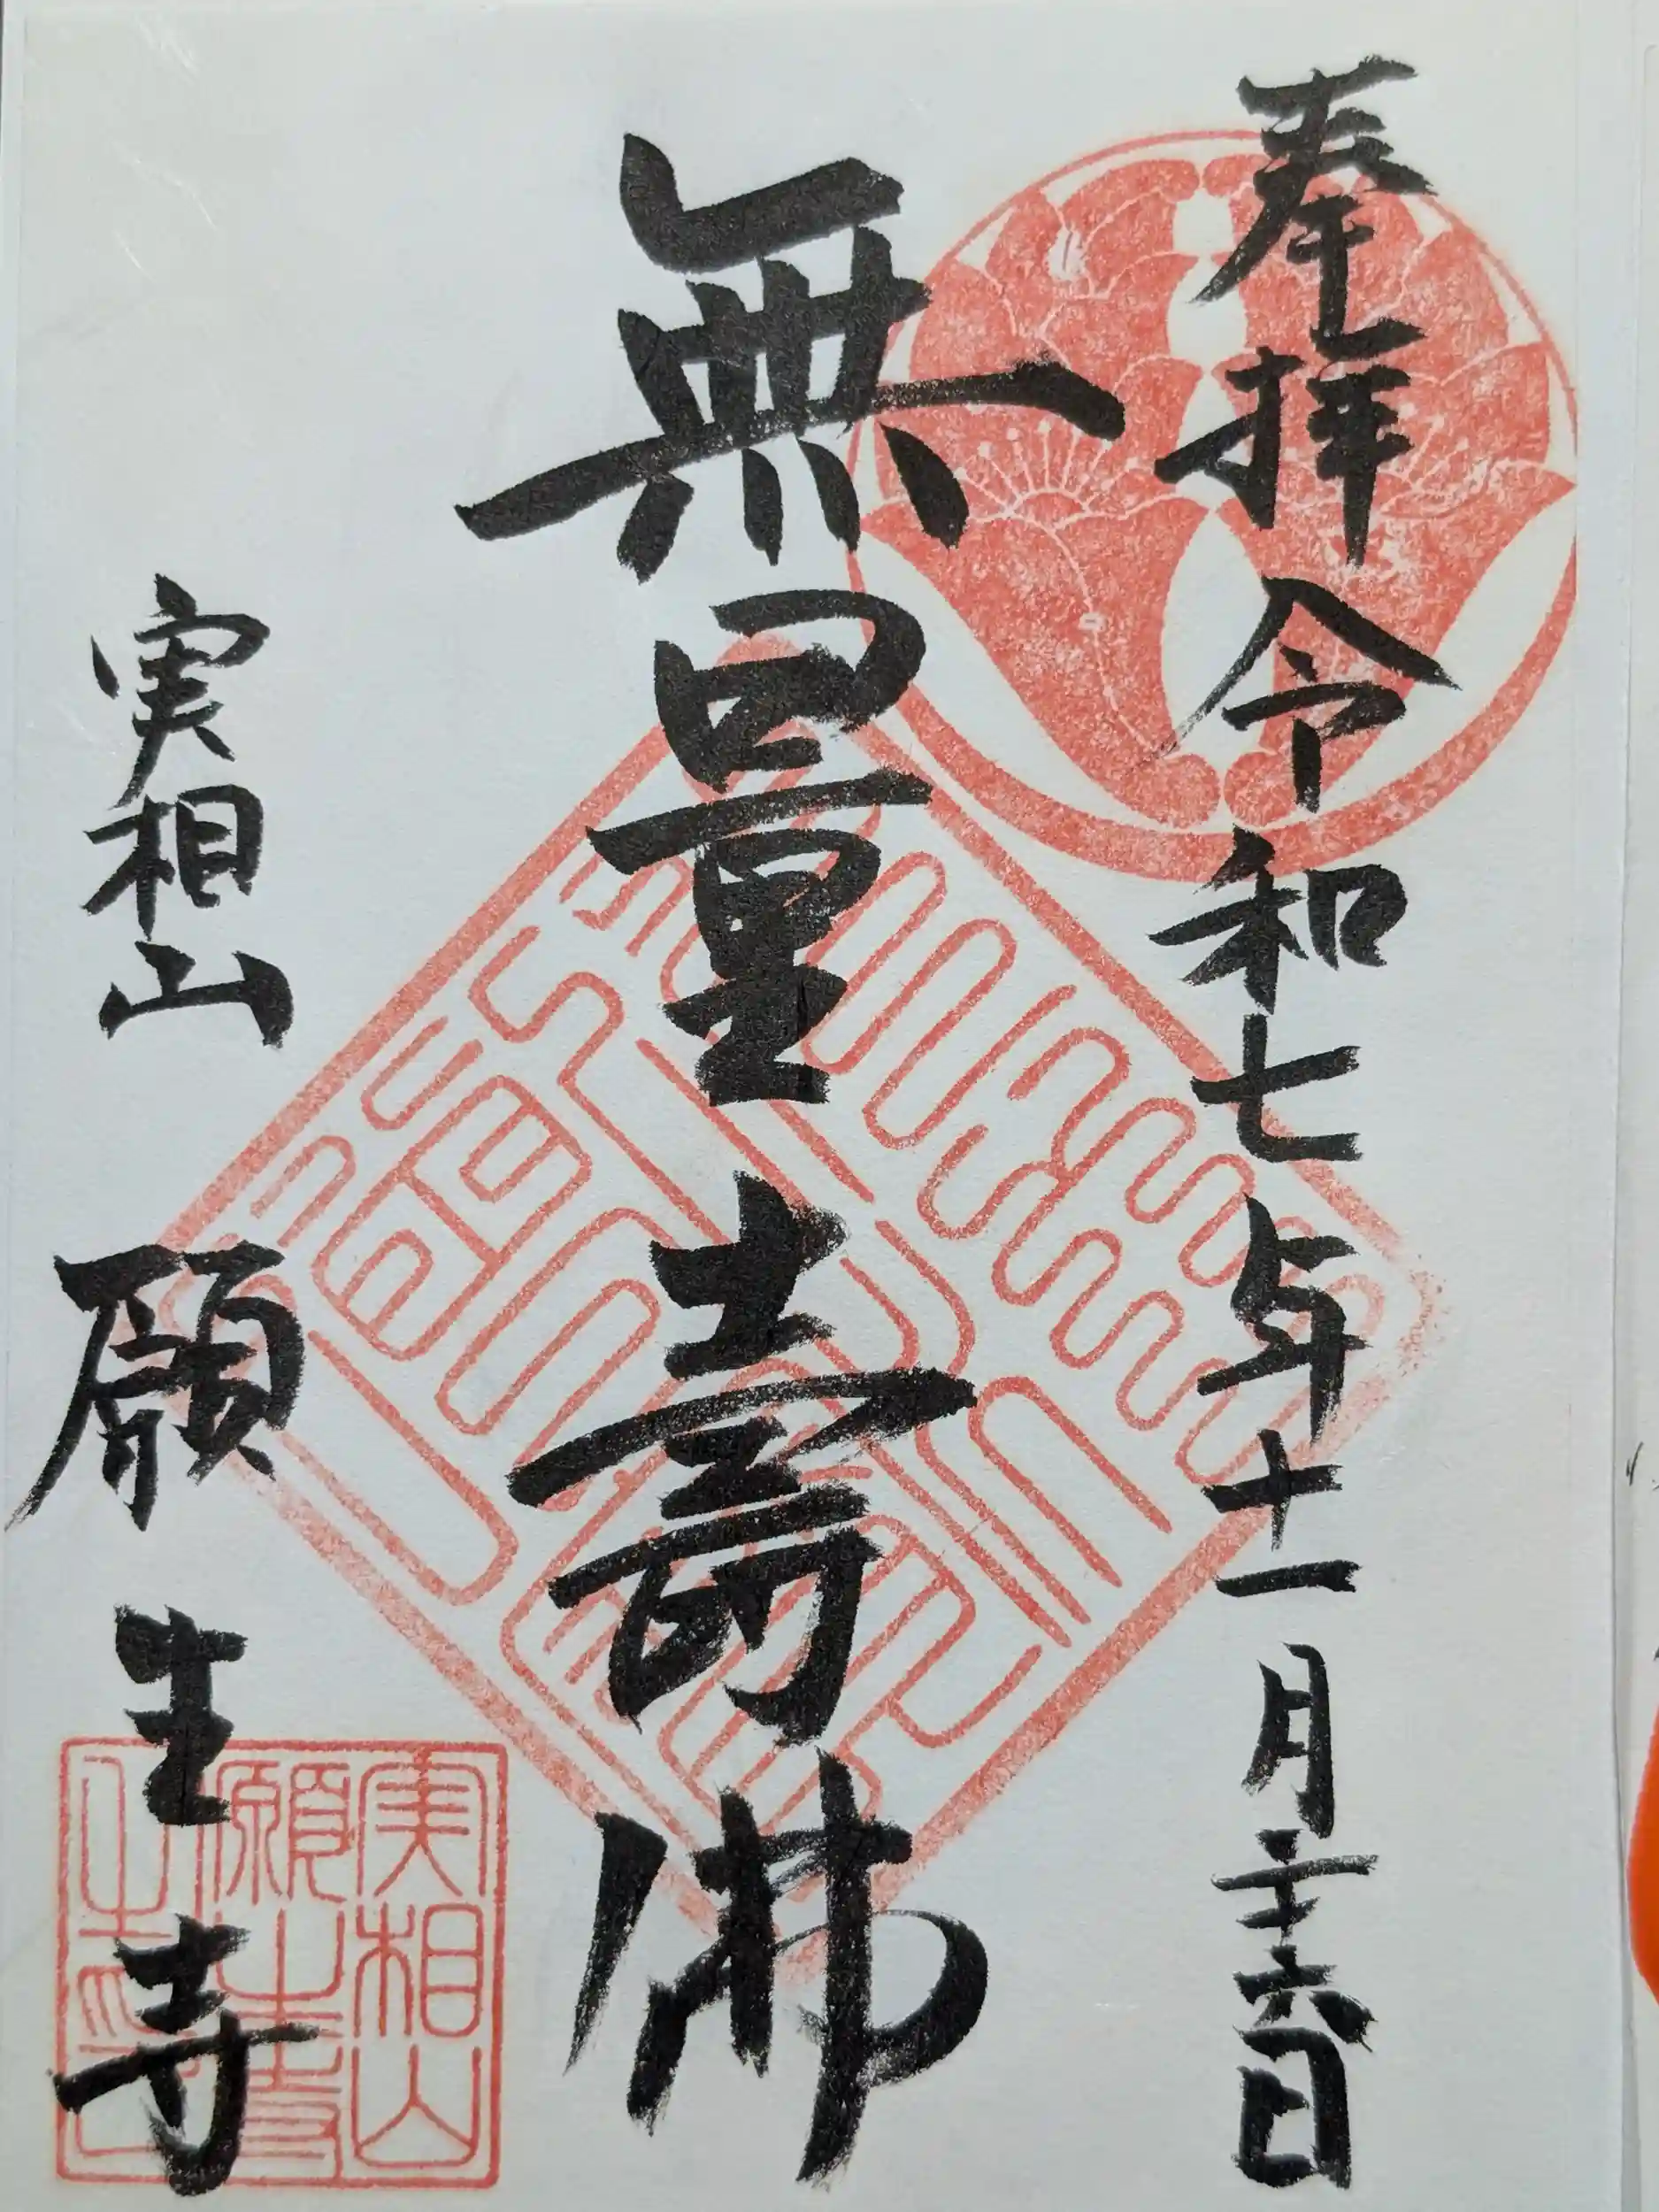 奉拝 令和七年十一月二十六日
無量壽佛
実相山 願生寺
実相山
願生寺